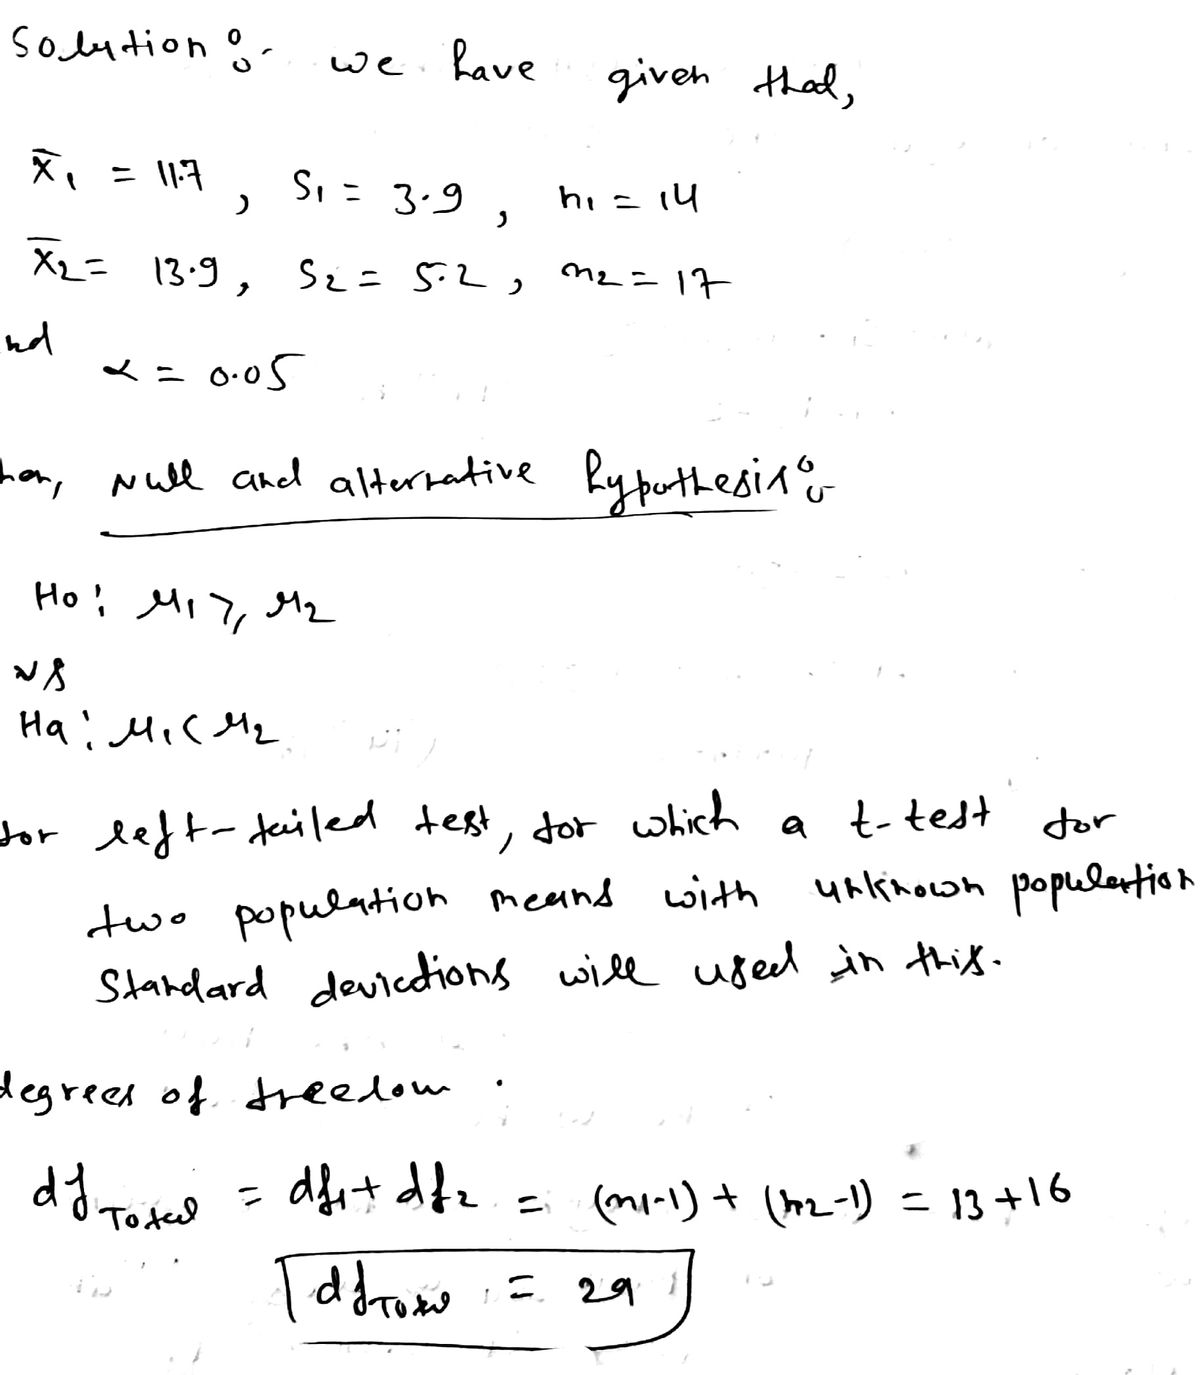 Solution :- we have given that,
x̄₁ = 11.7, S₁ = 3.9, n₁ = 14
x̄₂ = 13.9, S₂ = 5.2, n₂ = 17
nd
α = 0.05
hen, Null and alternative hypothesis :-
Ho : μ₁ ≥ μ₂
vs
Ha : μ₁ < μ₂
for left-tailed test, for which a t-test for
two population means with unknown population
Standard deviations will used in this.
degrees of freedom .
df Total = df₁ + df₂ = (n₁-1) + (n₂-1) = 13 + 16
df Total = 29